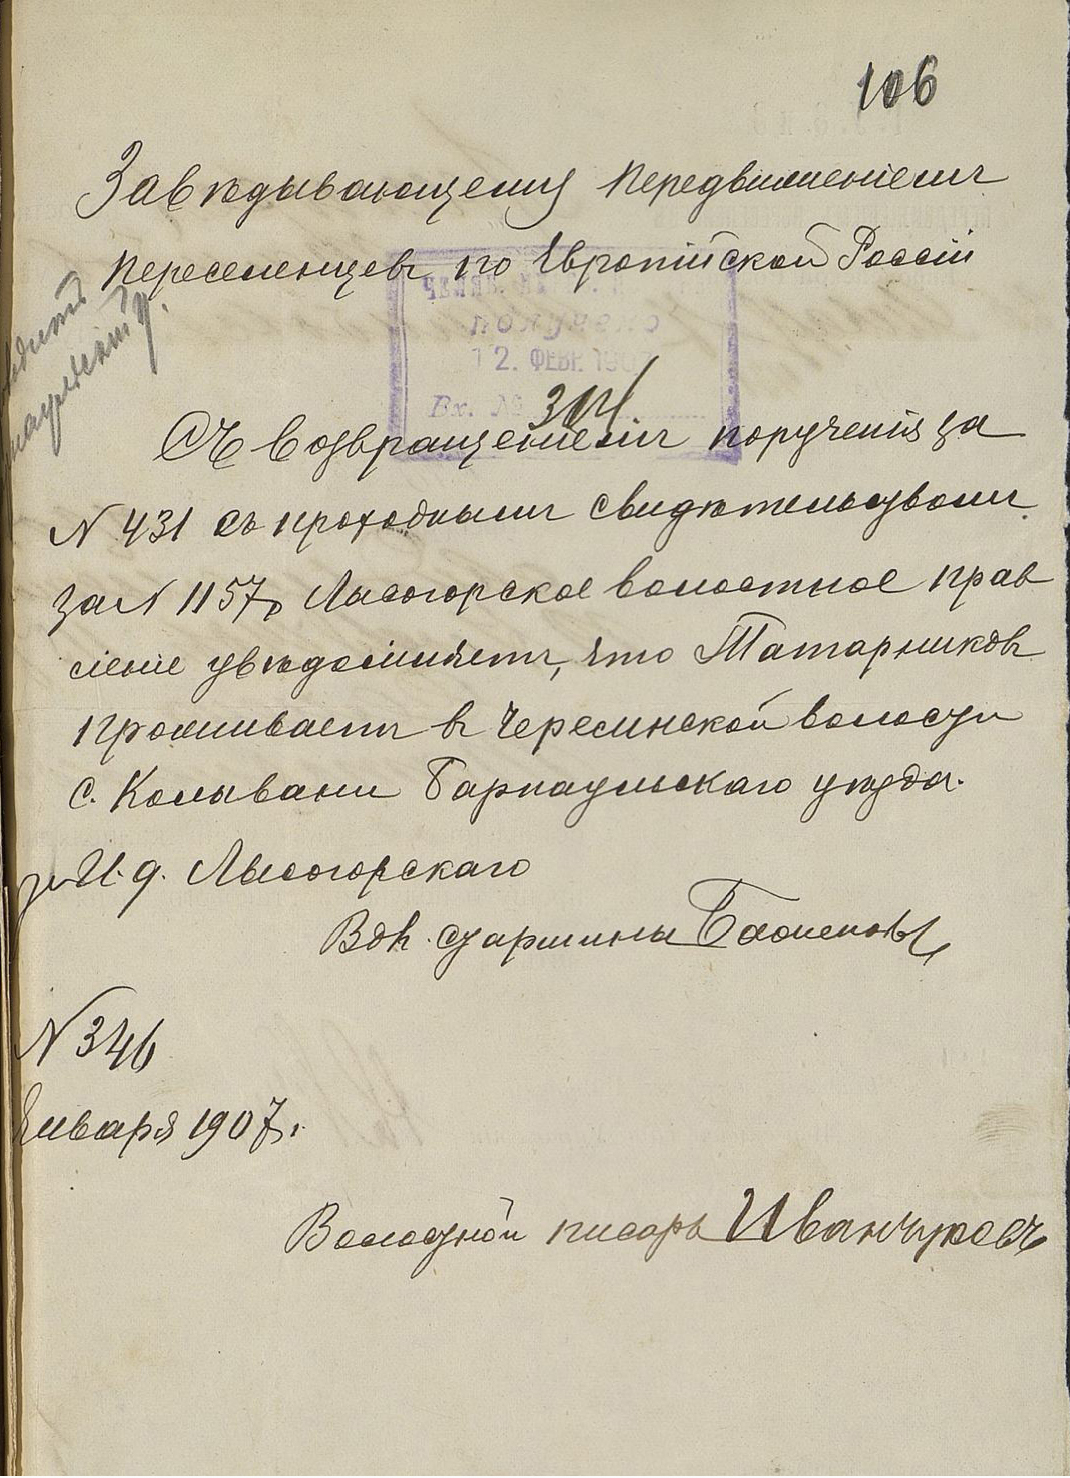 106
Завѣдывающему Передвиженіемъ
Переселенцевъ по Европійской Россіи
получено
12. ФЕВР. 190
Вх. № 314.
Съ возвращеніемъ порученія за
N 431 съ проходнымъ свидѣтельствомъ
за N 1157, Лысогорское волостное прав
леніе увѣдомляетъ, что Татарниковъ
проживаетъ въ Чересинской волости
с. Колывани Барнаульскаго уѣзда.
за И. д. Лысогорскаго
Вол. старшины
N 346
Января 1907 г.
Волостной писарь Иванчуковъ